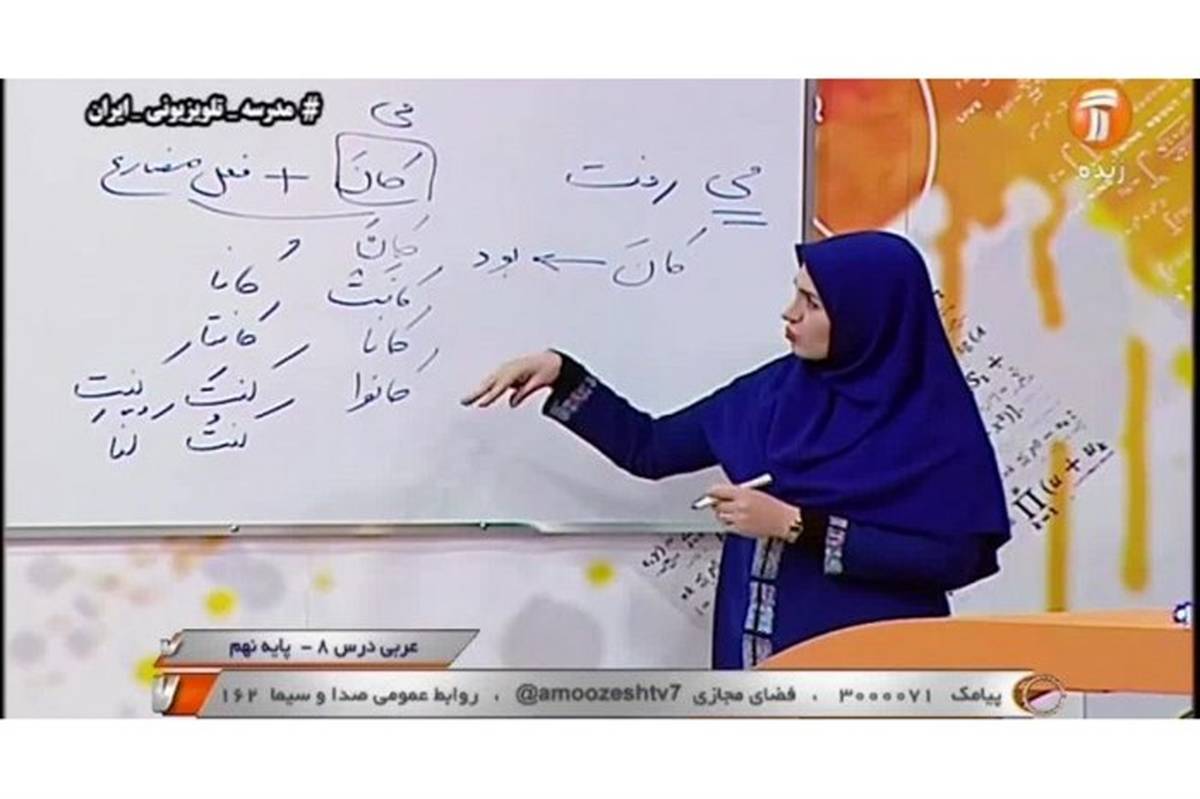 # مدرسه_تلویزیونی_ایران
زنده
می
کانَ + فعل مضارع
می رفت
کانَ
کانَ ← بود
کانَتْ کانا
کانا کانتا
کانوا کنتَ
کنتُ کنا
عربی درس ۸ - پایه نهم
پیامک ۳۰۰۰۰۷۱ ، فضای مجازی @amoozeshtv7 ، روابط عمومی صدا و سیما ۱۶۲